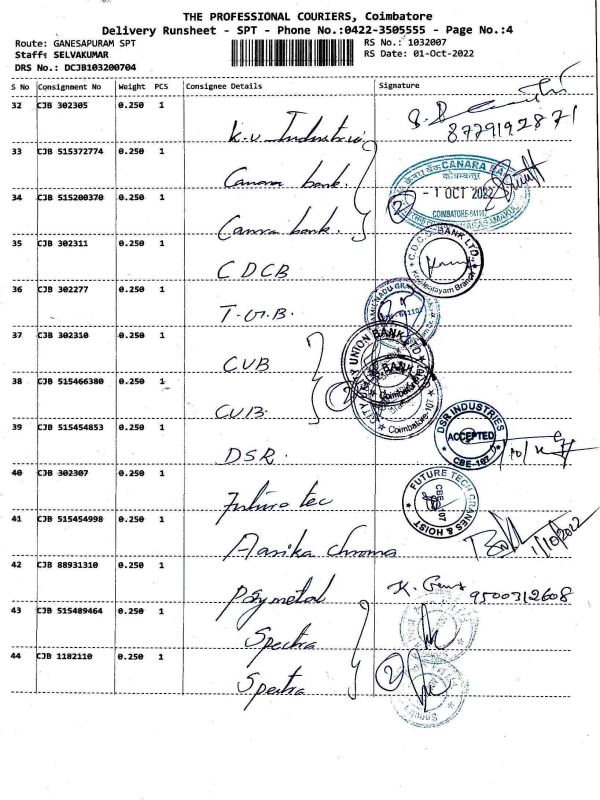 THE PROFESSIONAL COURIERS, Coimbatore
Delivery Runsheet - SPT - Phone No.:0422-3505555 - Page No.:4
Route: GANESAPURAM SPT
RS No.: 1032007
Staff: SELVAKUMAR
RS Date: 01-Oct-2022
DRS No.: DCJB103200704
S No Consignment No Weight PCS Consignee Details Signature
32 CJB 302305 0.250 1 K.V. Industries
8779192871
33 CJB 515372774 0.250 1 Canara bank.
CANARA BANK
- 1 OCT 2022
COIMBATORE-641107
34 CJB 515200370 0.250 1 Canara bank. 2
35 CJB 302311 0.250 1 CDCB
C.D.C.C. BANK LTD.
Branch
36 CJB 302277 0.250 1 T.G.B.
TAMILNADU GRAMA
37 CJB 302310 0.250 1 CUB
CITY UNION BANK LTD
38 CJB 515466380 0.250 1 CUB 2
Coimbatore-107
39 CJB 515454853 0.250 1 DSR.
DSR INDUSTRIES
ACCEPTED
CBE-107
40 CJB 302307 0.250 1 Future tec
FUTURE TECH CRANES & HOIST
CBE-107
41 CJB 515454998 0.250 1 Aarika Chroma
1/10/2022
42 CJB 88931310 0.250 1 Polymetal
K.
9500312608
43 CJB 515489464 0.250 1 Spectra
44 CJB 1182110 0.250 1 Spectra 2